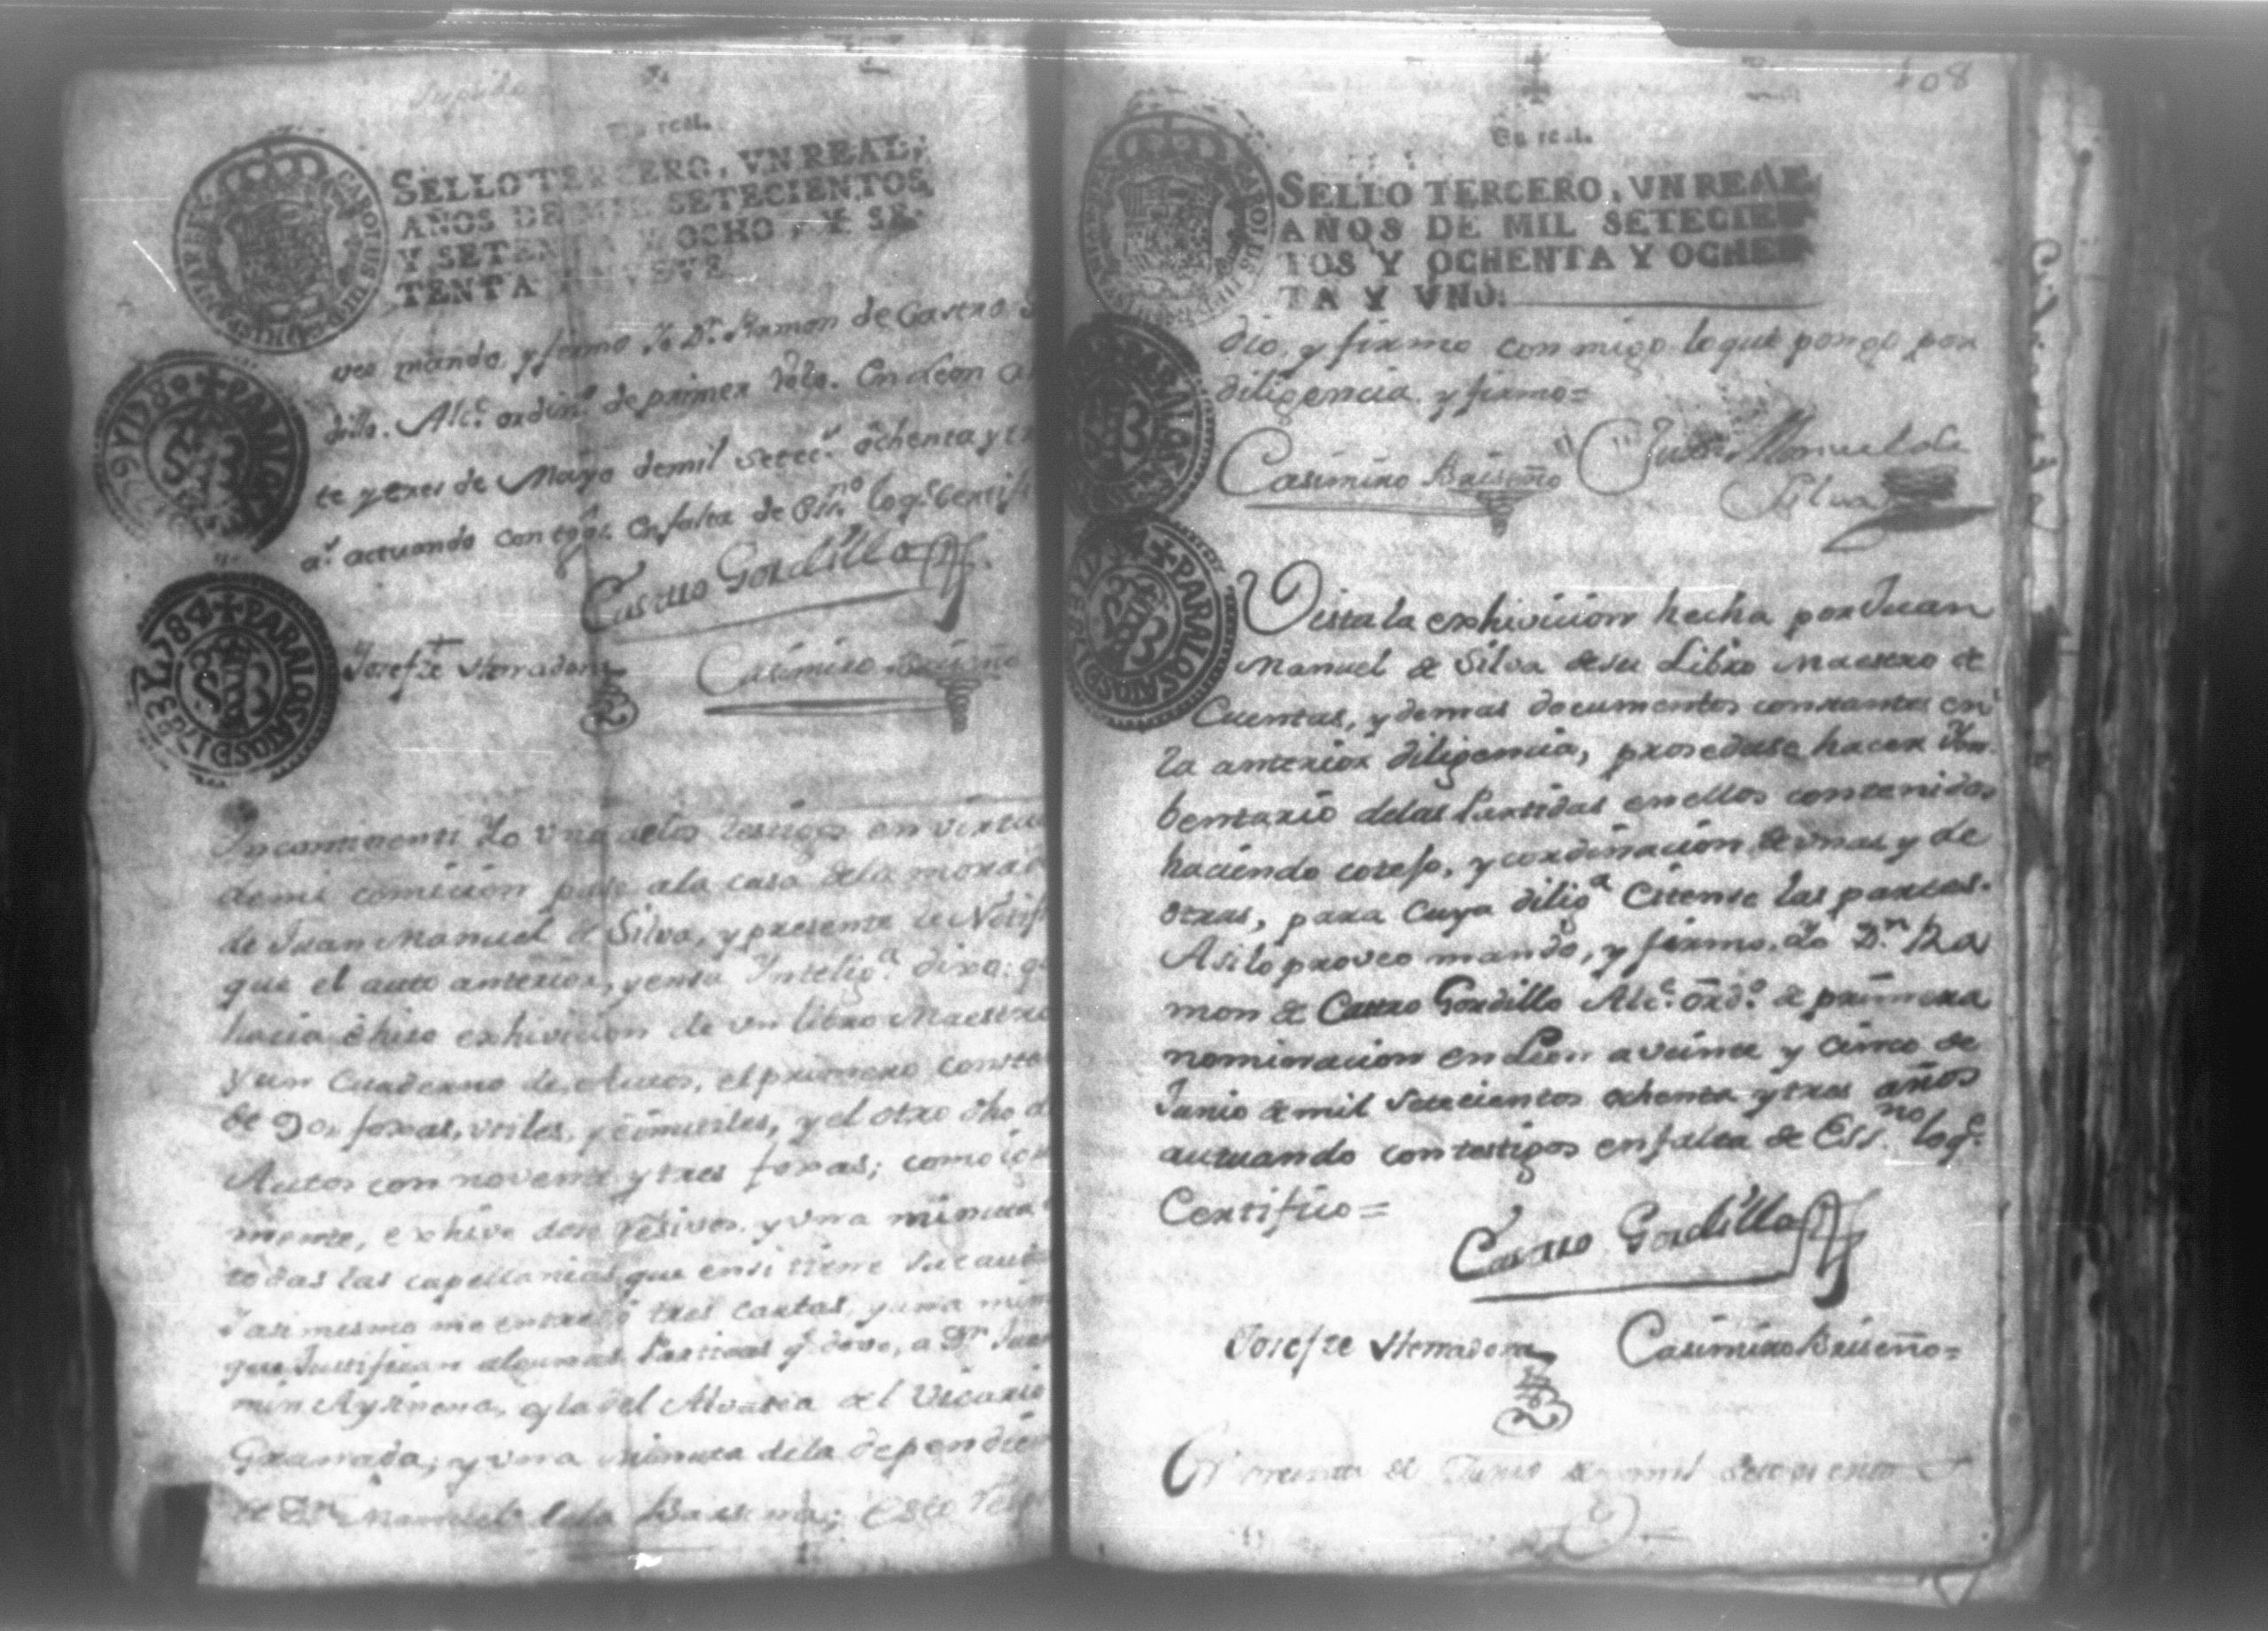 Un real.
SELLO TERCERO, VN REAL,
AÑOS DE MIL SETECIENTOS,
Y SETENTA Y OCHO, Y SE-
TENTA Y NUEVE
CAROLUS III D G HISP
PARA LOS AÑOS D 1780
PARA LOS AÑOS D 1783 Y 784
veo mando, y firmo Yo Dn. Ramon de Castro
dillo. Alce. ordino. de primer Voto. En Leon a
te y tres de Mayo de mil setecs. ochenta y
as. actuando con tgos. en falta de Essno. loqe. Certifi
Castro Gordillo
Josef Herradora
Casimiro Briseño
Yncontinenti Yo Uno de los testigos en virtu
de mi comicion pase a la casa de la mora
de Juan Manuel de Silva, y presente le Notifi
que el auto anterior, y en su Inteliga. dixo: q
hacia è hiso exhivicion de un libro Maestro
y un Cuaderno de Autos, el primero consta
de 90. foxas, utiles, y ènutiles, y el otro dho de
Autos con noventa y tres foxas; como ig
mente, exhive dos resivos, y una minuta
todas las capellanias que en si tiene
Y asi mesmo me entregò tres cartas, y una min
que Justifican algunas Partidas q. deve, a Dn. Juan
min Aysinena, y la del Alvasea del Vicario
Granada; y una minuta de la dependie
de Dn. Manuel de la Barsena; Esto
108
Un real.
SELLO TERCERO, VN REAL
AÑOS DE MIL SETECIEN-
TOS Y OCHENTA Y OCHEN-
TA Y VNO.
PARA LOS AÑOS
PARA LOS AÑOS D 1783 Y 784
dio, y firmo conmigo lo que pongo por
diligencia y firmo=
Casimiro Briseño Juan Manuel de
Silva
Vista la exhivicion hecha por Juan
Manuel de Silva de su Libro Maestro de
Cuentas, y demas documentos constantes en
la anterior diligencia, prosedase hacer Ym-
bentario de las Partidas en ellos contenidas
haciendo cotejo, y cordinacion de unas y de
otras, para cuya diliga. Citense las partes.
Asi lo proveo mando, y firmo. Yo Dn. Ra
mon de Castro Gordillo Alce. òrdo. de primera
nominacion en Leon a veinte y cinco de
Junio de mil setecientos ochenta y tres años
actuando con testigos en falta de Essno. loqe.
Certifico=
Castro Gordillo
Josef Herradora Casimiro Briseño=
de Junio de mil setecientos